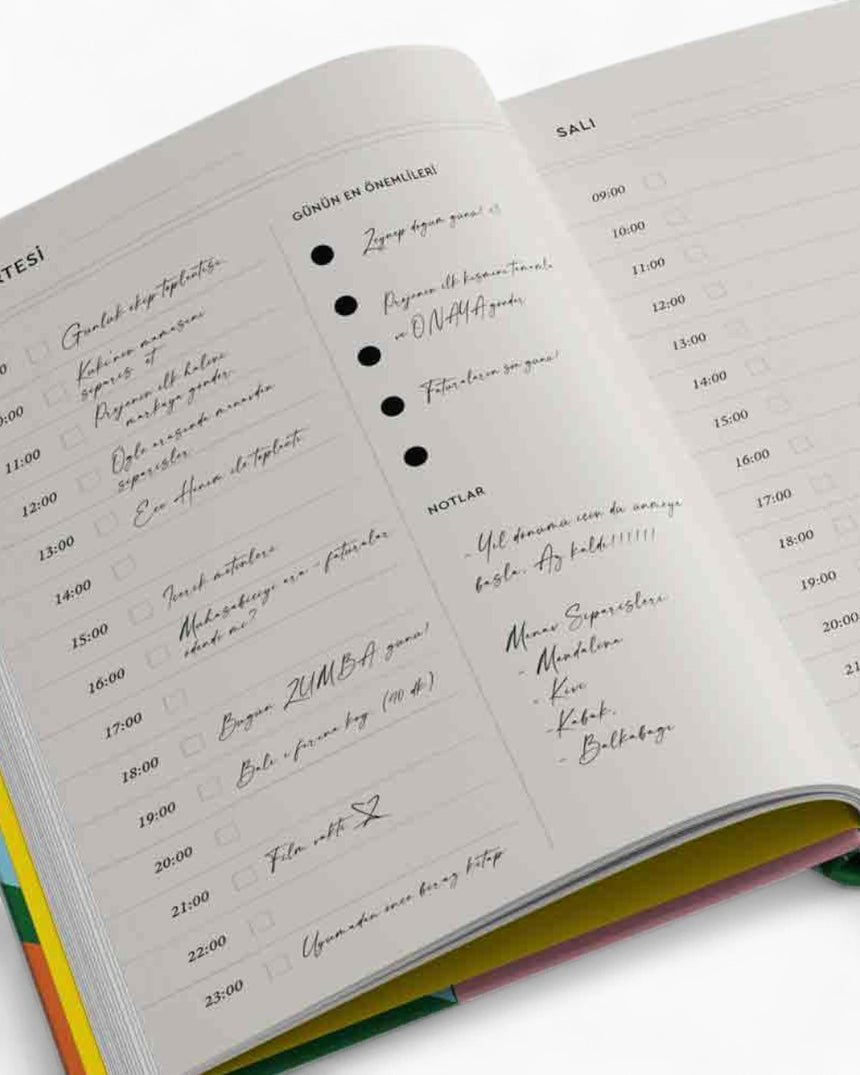 RTESİ
Günlük ekip toplantısı
0:00
Kuki'nin mamasını
sipariş et
11:00
Projenin ilk halini
markaya gönder
12:00
Öğle arasında manavdan
siparişler
13:00
Ece Hanım ile toplantı
14:00
15:00
İçerik metinleri
16:00
Muhasebeciyi ara - faturalar
ödendi mi?
17:00
18:00
Bugün ZUMBA günü!
19:00
Balı fırına koy (110 dk)
20:00
21:00
Film vakti
22:00
23:00
Uyumadan önce biraz kitap
GÜNÜN EN ÖNEMLİLERİ
Zeynep doğum günü!
Projenin ilk kısmını tamamla
ve ONAYA gönder
Faturaların son günü!
NOTLAR
- Yıl dönümü için düşünmeye
başla. Az kaldı!!!!!!
Manav Siparişleri
- Mandalina
- Kivi
- Kabak.
- Balkabağı
SALI
09:00
10:00
11:00
12:00
13:00
14:00
15:00
16:00
17:00
18:00
19:00
20:00
21